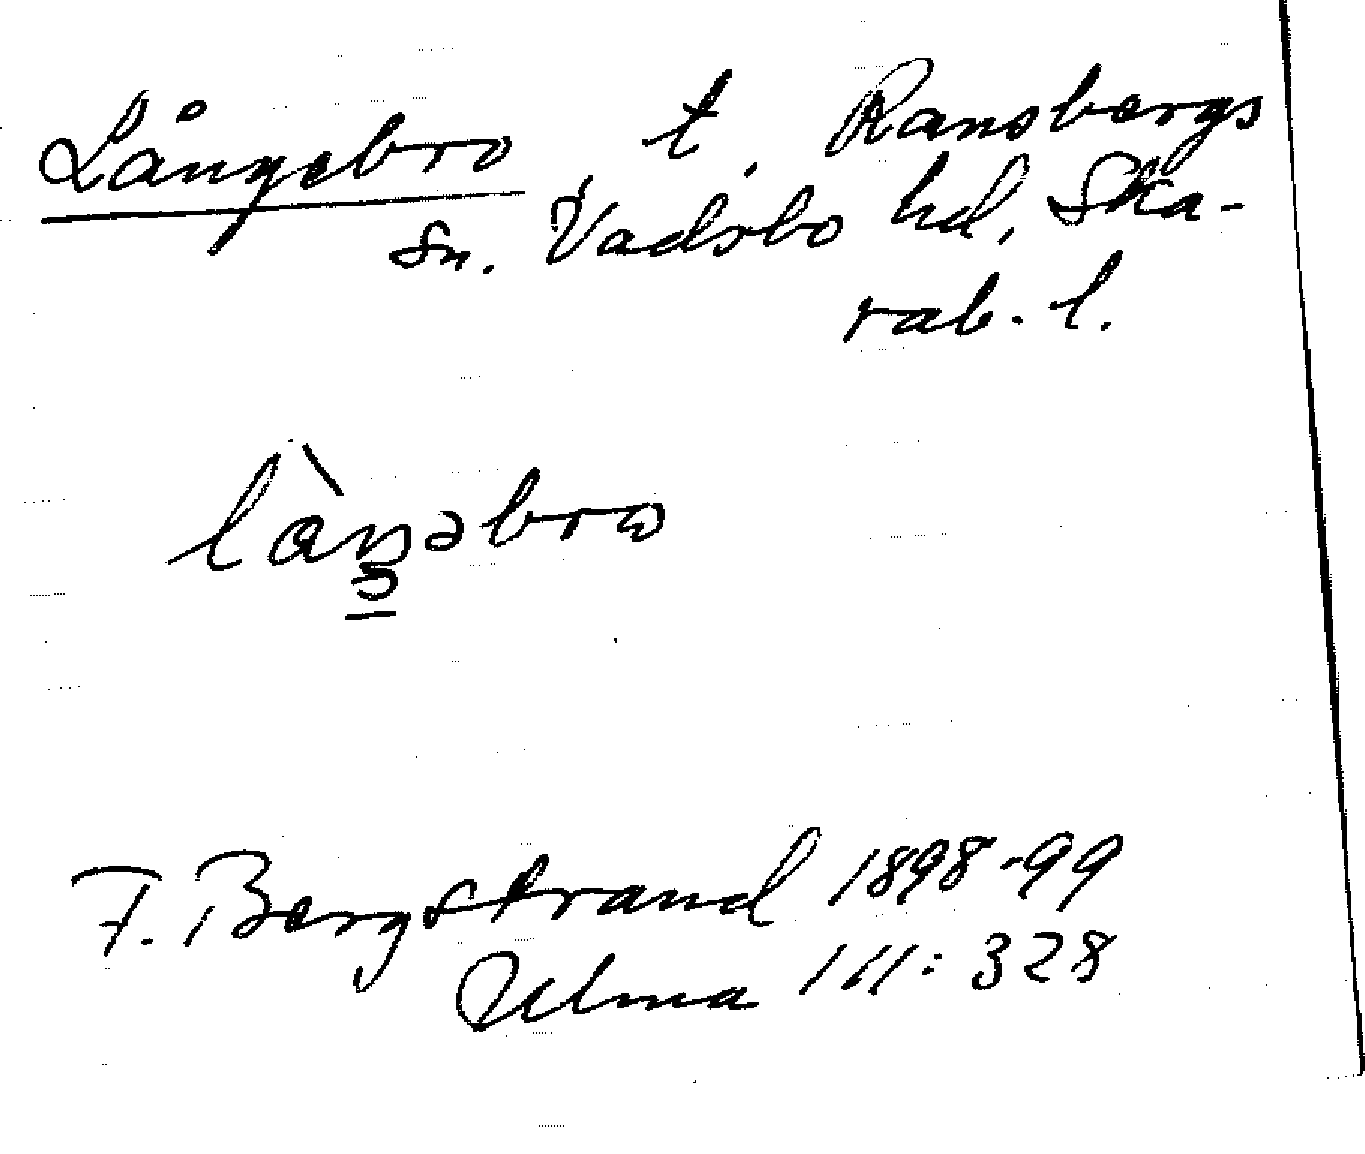 Långebro t. Ransbergs
sn. Vadsbo hd, Ska-
rab. l.
là̀ŋəbro
F. Bergstrand 1898-99
Ulma 111:328